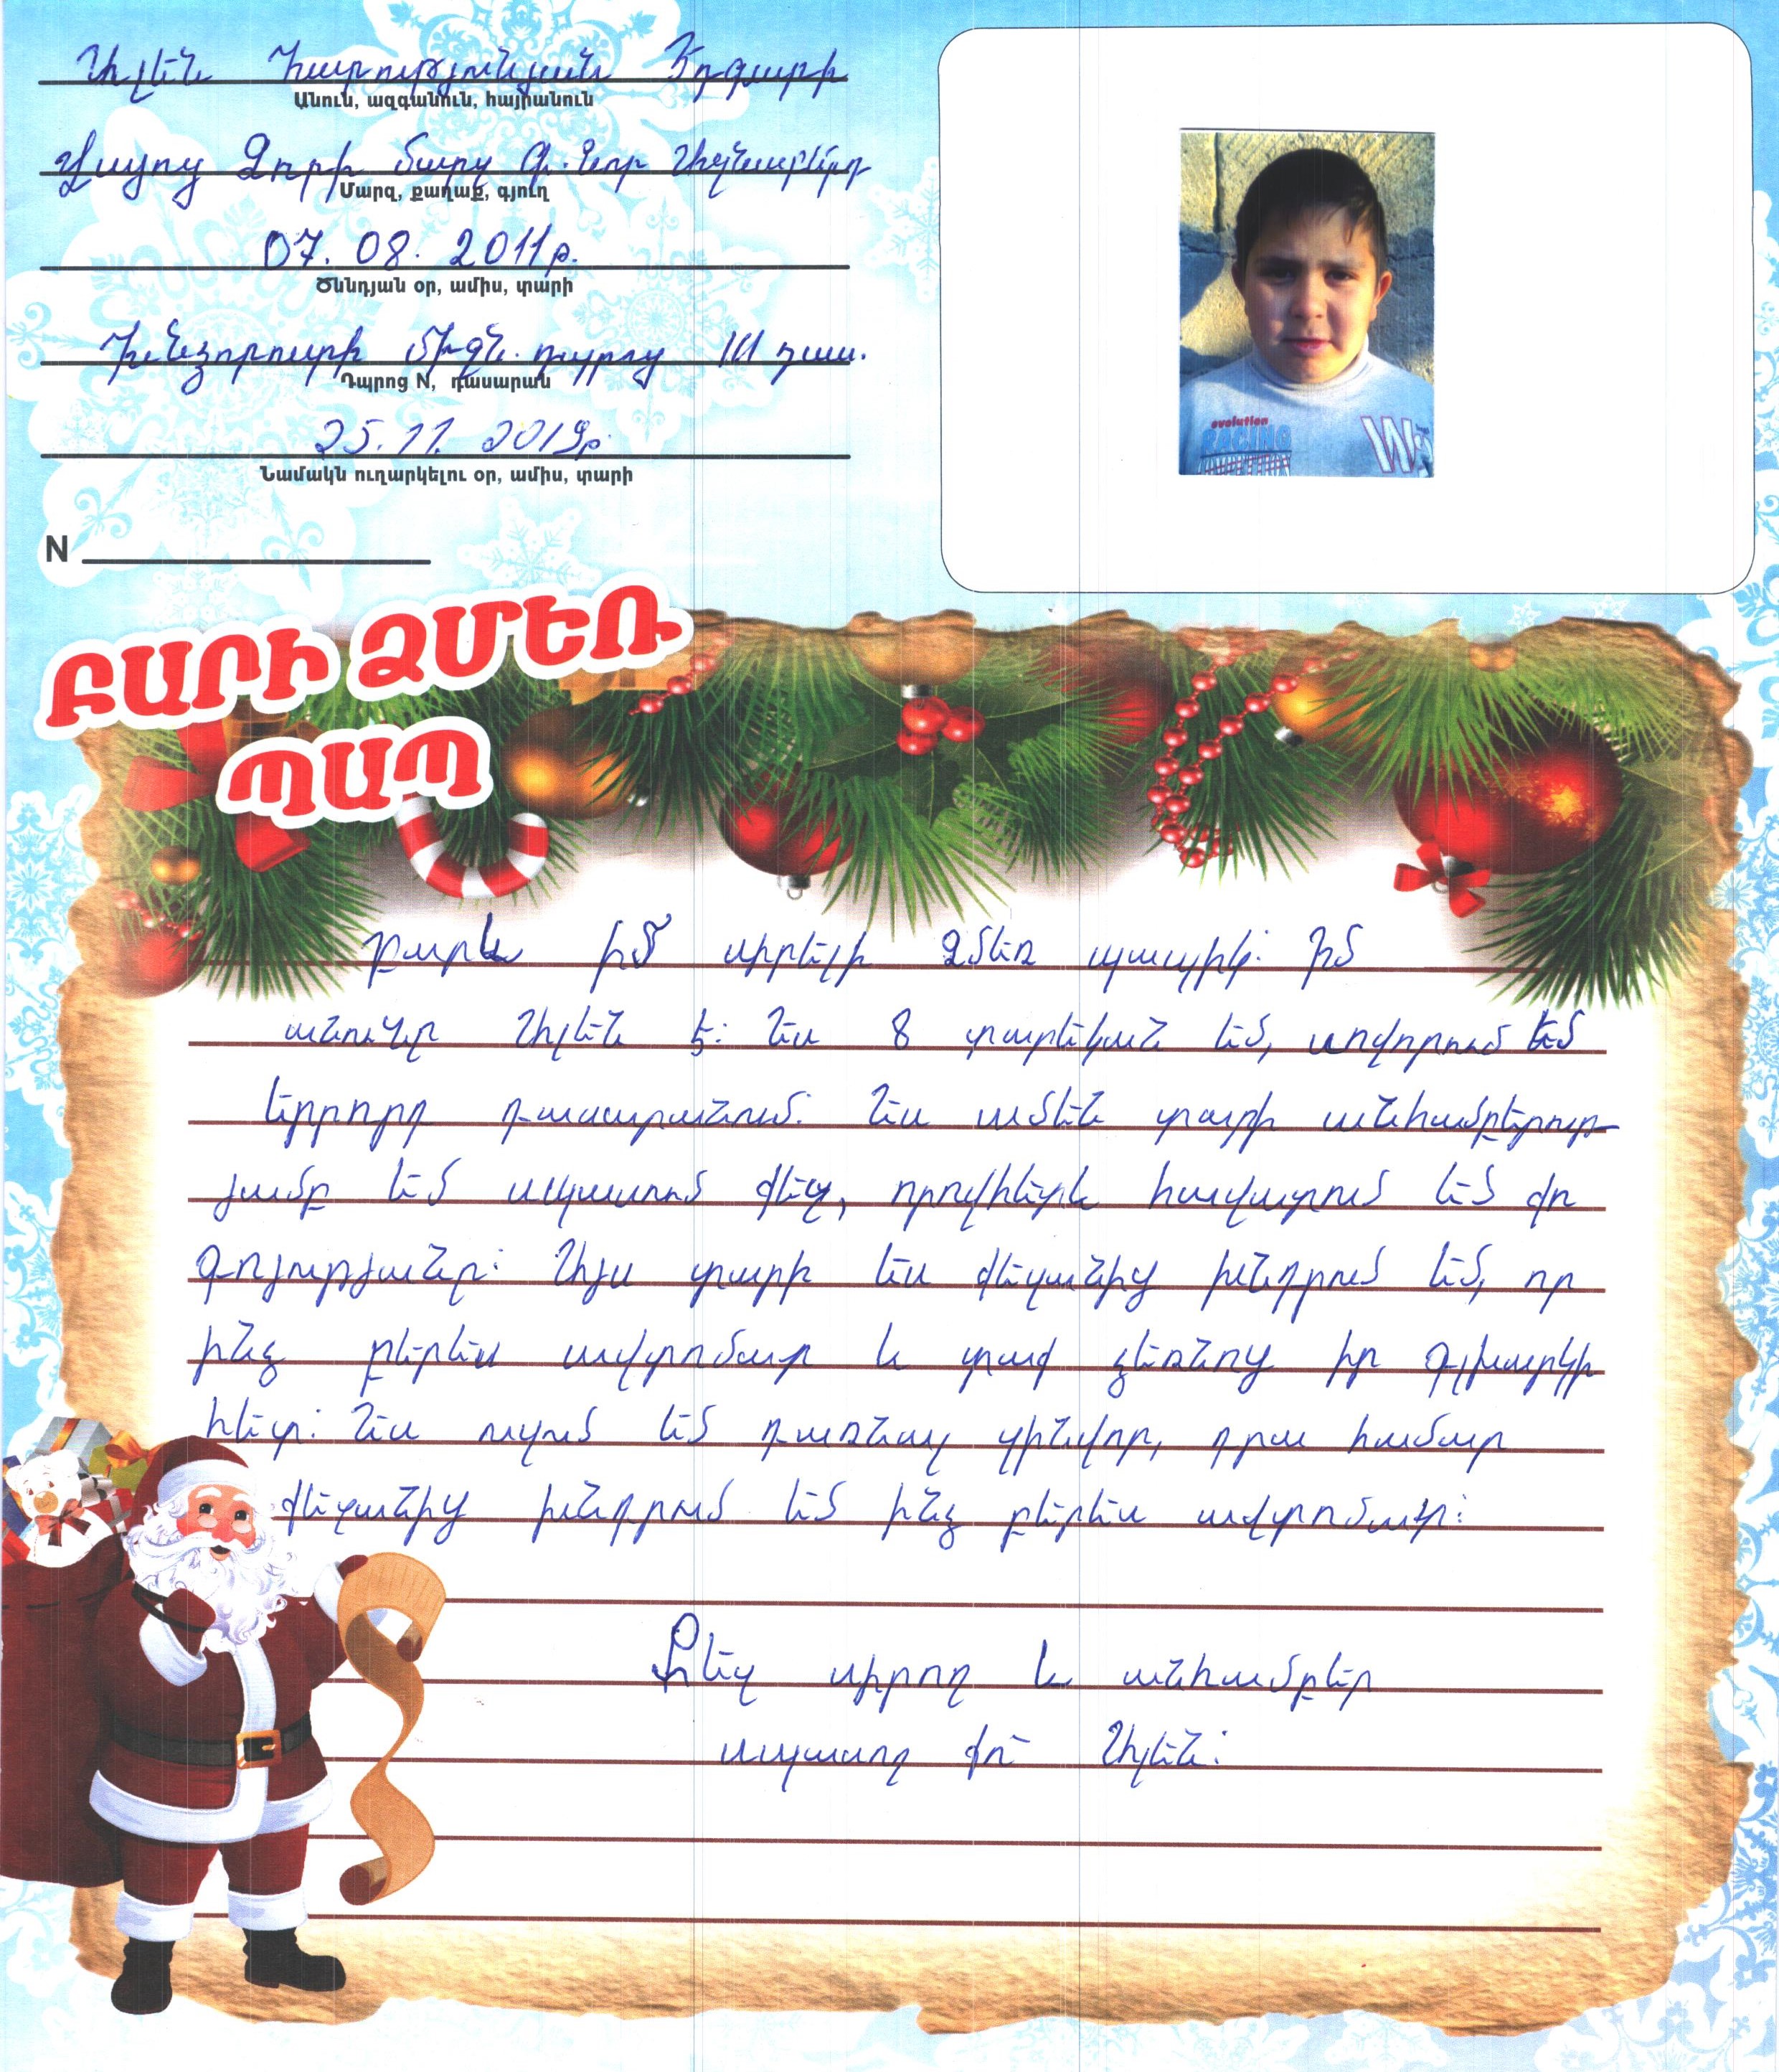 Ալեն Հարությունյան Էդգարի
Անուն, ազգանուն, հայրանուն
Վայոց Ձորի մարզ գ. Նոր Ազնաբերդ
Մարզ, քաղաք, գյուղ
07. 08. 2011թ.
Ծննդյան օր, ամիս, տարի
Խնձորուտի միջն. դպրոց III դաս.
Դպրոց N, դասարան
25.11. 2019թ.
Նամակն ուղարկելու օր, ամիս, տարի
N
evolution
RACING
W
ԲԱՐԻ ՁՄԵՌ
ՊԱՊ
Բարև իմ սիրելի Ձմեռ պապիկ: Իմ
անունը Ալեն է: Ես 8 տարեկան եմ, սովորում եմ
երրորդ դասարանում: Ես ամեն տարի անհամբերութ-
յամբ եմ սպասում քեզ, որովհետև հավատում եմ քո
գոյությանը: Այս տարի ես քեզանից խնդրում եմ, որ
ինձ բերես ավտոմատ և տաք ձեռնոց իր գլխարկի
հետ: Ես ուզում եմ դառնալ զինվոր, դրա համար
քեզանից խնդրում եմ ինձ բերես ավտոմատ:
Քեզ սիրող և անհամբեր
սպասող քո՝ Ալեն: